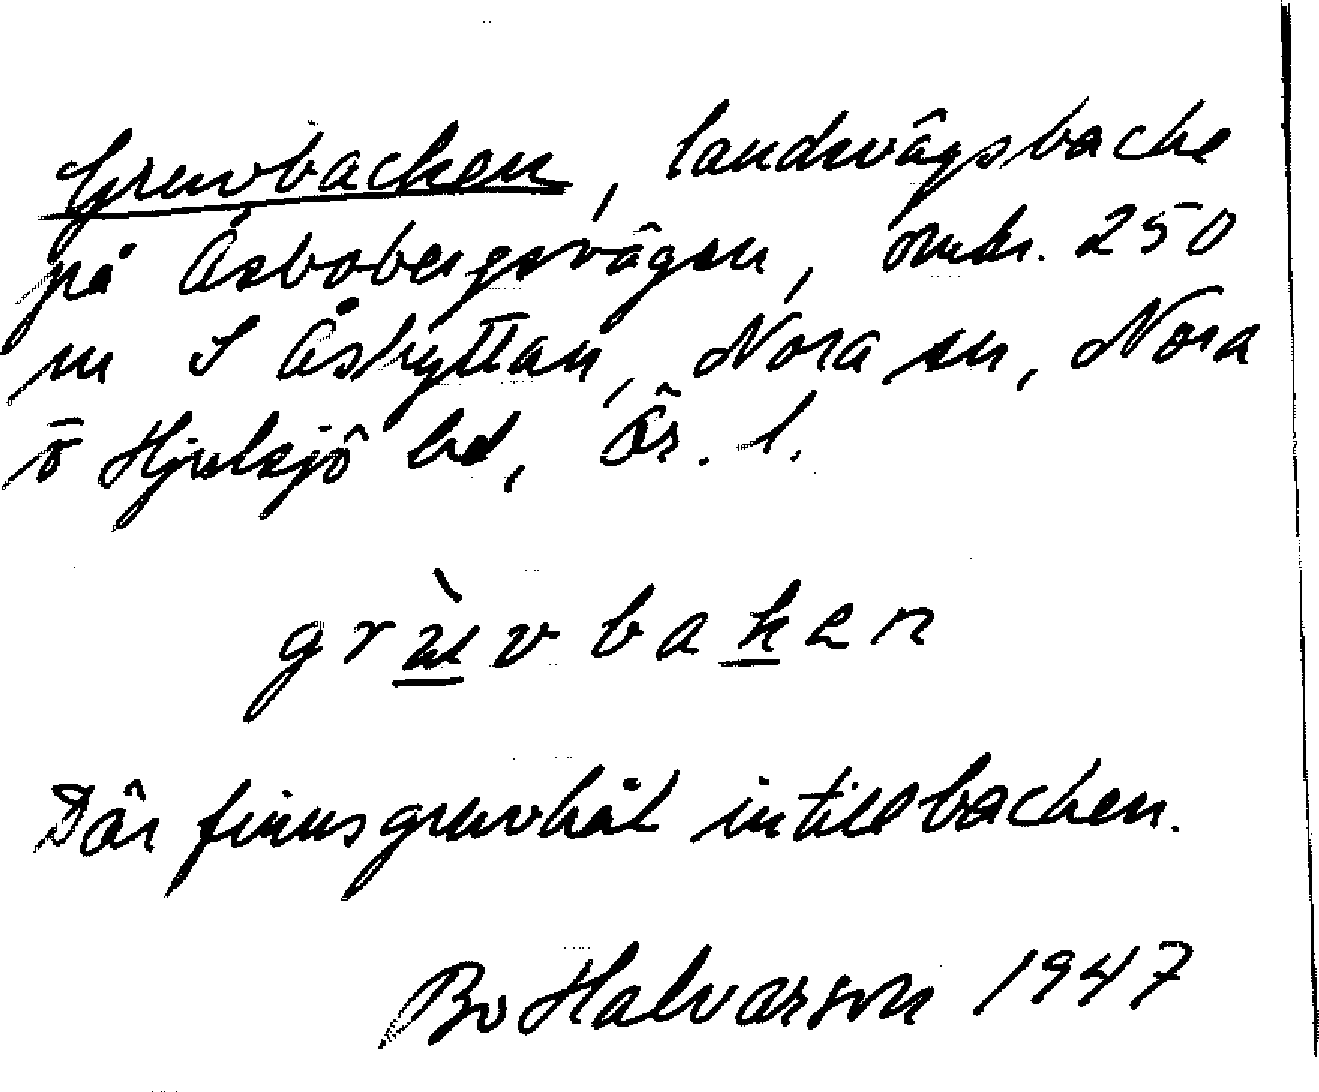 Gruvbacken, landsvägsbacke
på Åsbobergsvägen, omkr. 250
m S Åshyttan, Nora sn, Nora
o Hjulsjö bd, Ör. l.
grùvbaken
Där finns gruvhål intill backen.
Bo Halvarson 1947